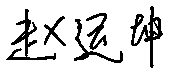 赵运坤